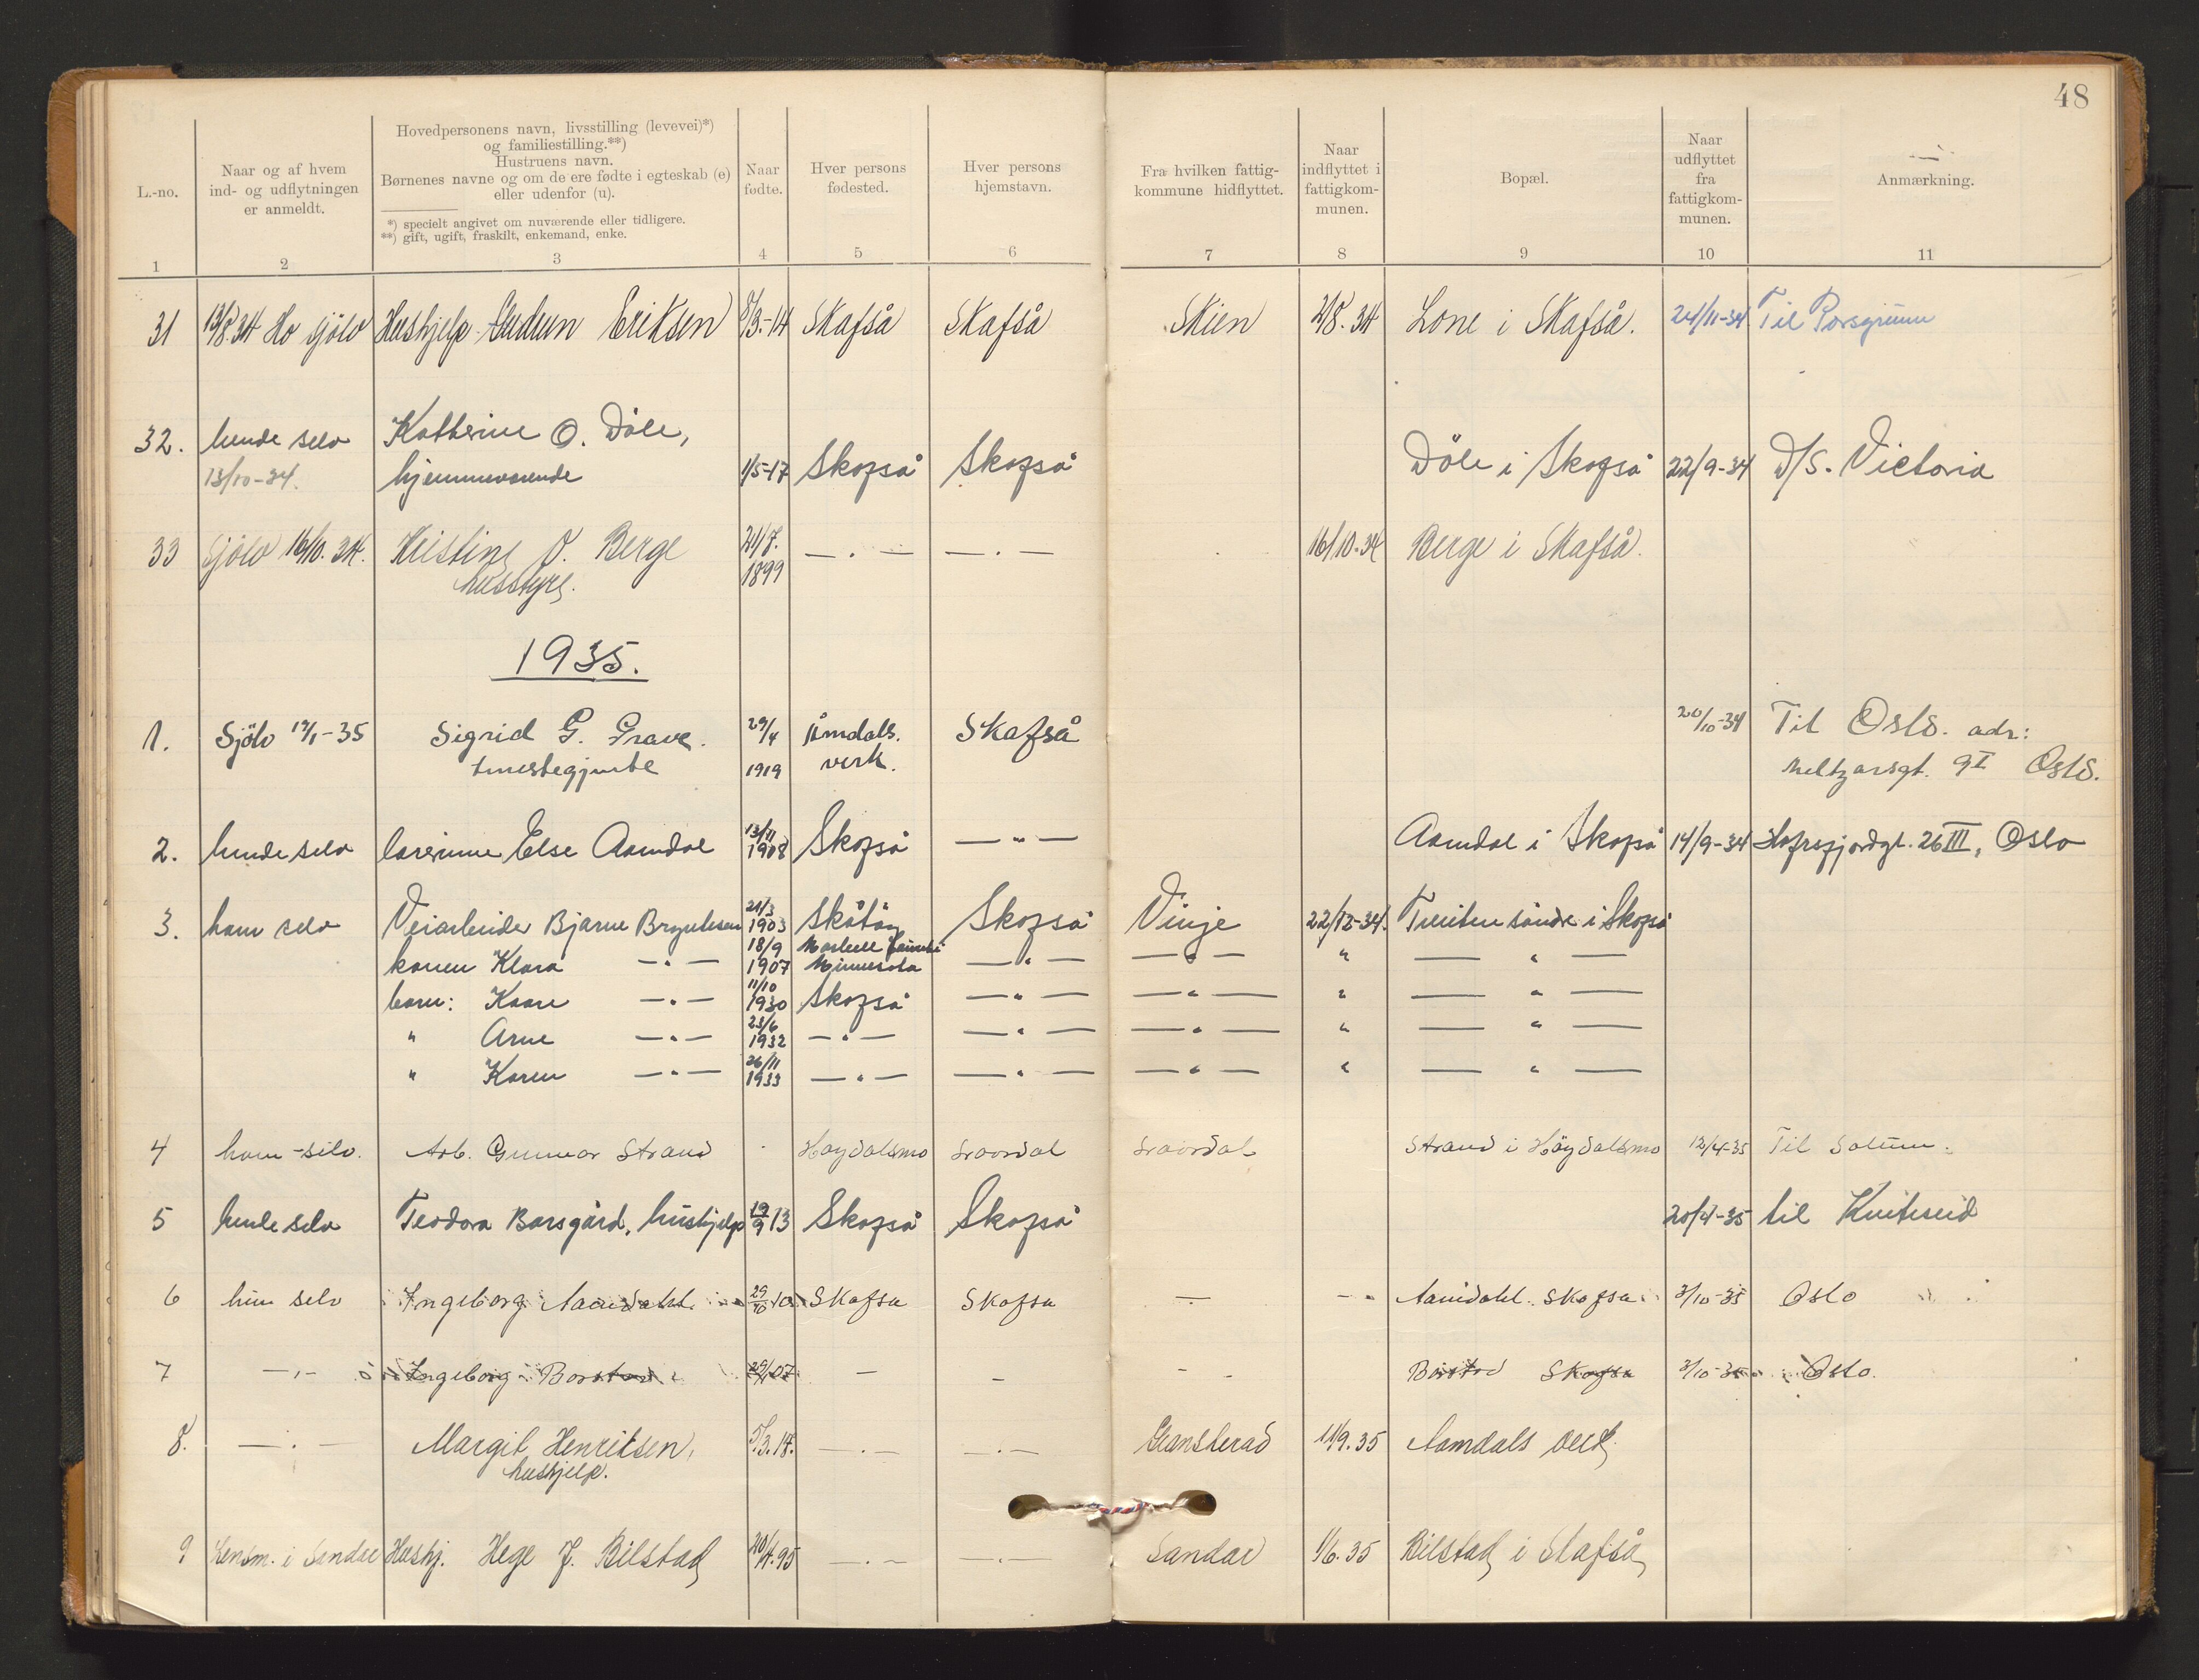 48
L.-no.
Naar og af hvem
ind- og udflytningen
er anmeldt.
Hovedpersonens navn, livsstilling (levevei)*)
og familiestilling.**)
Hustruens navn.
Børnenes navne og om de ere fødte i egteskab (e)
eller udenfor (u).
*) specielt angivet om nuværende eller tidligere.
**) gift, ugift, fraskilt, enkemand, enke.
Naar
fødte.
Hver persons
fødested.
Hver persons
hjemstavn.
Fra hvilken fattig-
kommune hidflyttet.
Naar
indflyttet i
fattigkom-
munen.
Bopæl.
Naar
udflyttet
fra
fattigkom-
munen.
Anmærkning.
1 2 3 4 5 6 7 8 9 10 11
31 13/8.34 Ho sjölv Hushjelp Gudrun Eriksen 8/3.-14 Skafså Skafså Skien 2/8.34 Lone i Skafså. 24/11-34 Til Porsgrunn
32. hende selv Kathrine O. Döle,
13/10-34. hjemmeværende 1/5-17 Skafså Skafså Döle i Skafså 22/9-34 D/S. Victoria
33 Sjölv 16/10.34. Kristine O. Berge 21/7. — " — — " — 16/10-34 Berge i Skafså.
husstyre. 1899
1935.
1. Sjölv 19/1-35 Sigrid G. Grave. 29/4 Åmdals. Skafså 20/10-34 Til Oslo. adr:
tenestegjente 1919 verk. Meltzersgt. 9 I Oslo.
2. hende selv lærerinne Else Aamdal 13/11 1908 Skafså — " — Aamdal i Skafså 14/9-34 Hafrsfjordgt. 26 III, Oslo
3. ham selv Veiarbeider Bjarne Bryntesen 21/3 1903 Skåtöy Skafså Vinje 22/12-34. Tveiten søndre i Skafså
konen Klara — " — 18/9 1907 Minnesota — " — — " — " — " —
barn: Kaare — " — 11/10 1930 Skafså — " — — " — " — " —
" Arne — " — 23/6 1932 — " — — " — — " — " — " —
" Karen — " — 26/11 1933 — " — — " — — " — " — " —
4 ham selv. Arb. Gunnar Strand Høydalsmo Lårdal Lårdal Strand i Höydalsmo 12/4-35 Til Solum.
5 hende selv Teodora Barsgård, hushjelp 19/9 13 Skafså Skafså 20/4-35 til Kviteseid
6 hun selv Ingeborg Aamdahl 29/10 Skafså Skafså — — Aamdahl Skafså 3/10-35 Oslo
7 — " — Ingeborg Borstad 29/1 07 — — - - Borstad Skafså 3/10-35 Oslo.
8. — " — Margit Henriksen, 5/3.14. — " — — " — Gransherad 11/9.35 Aamdals verk.
hushjelp.
9 Lensm. i Sandar Hushj. Hege J. Bilstad 20/4.95 — " — — " — Sandar 1/6.35 Bilstad i Skafså